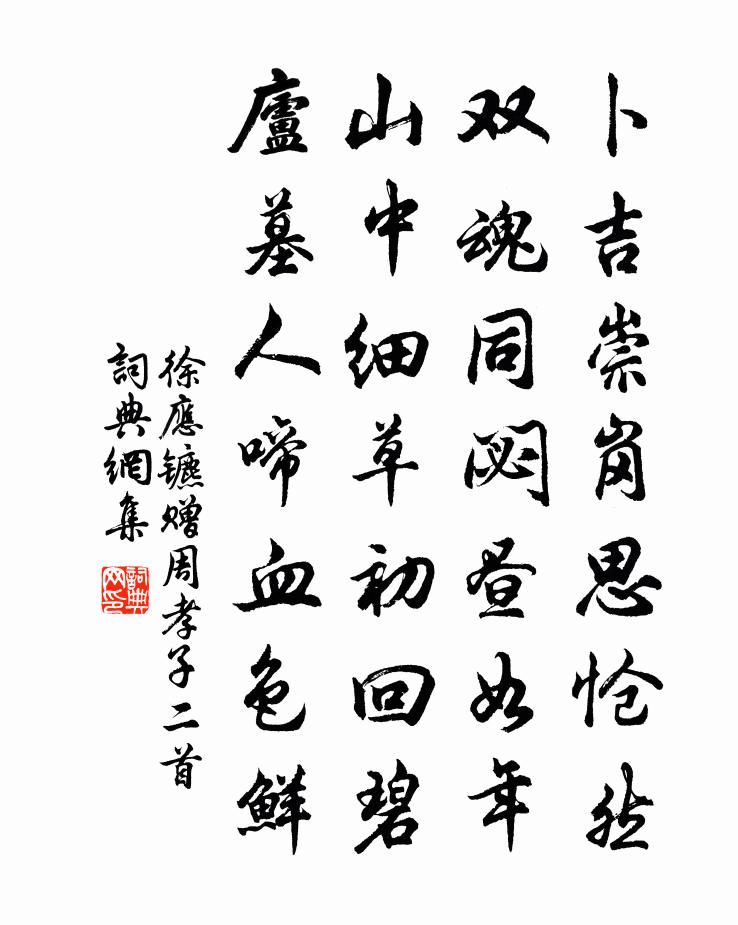 卜吉崇岗思怆然
双魂同閟昼如年
山中细草初回碧
廬墓人啼血色鮮
徐應镳赠周孝子二首
詞典網集
詞典网印